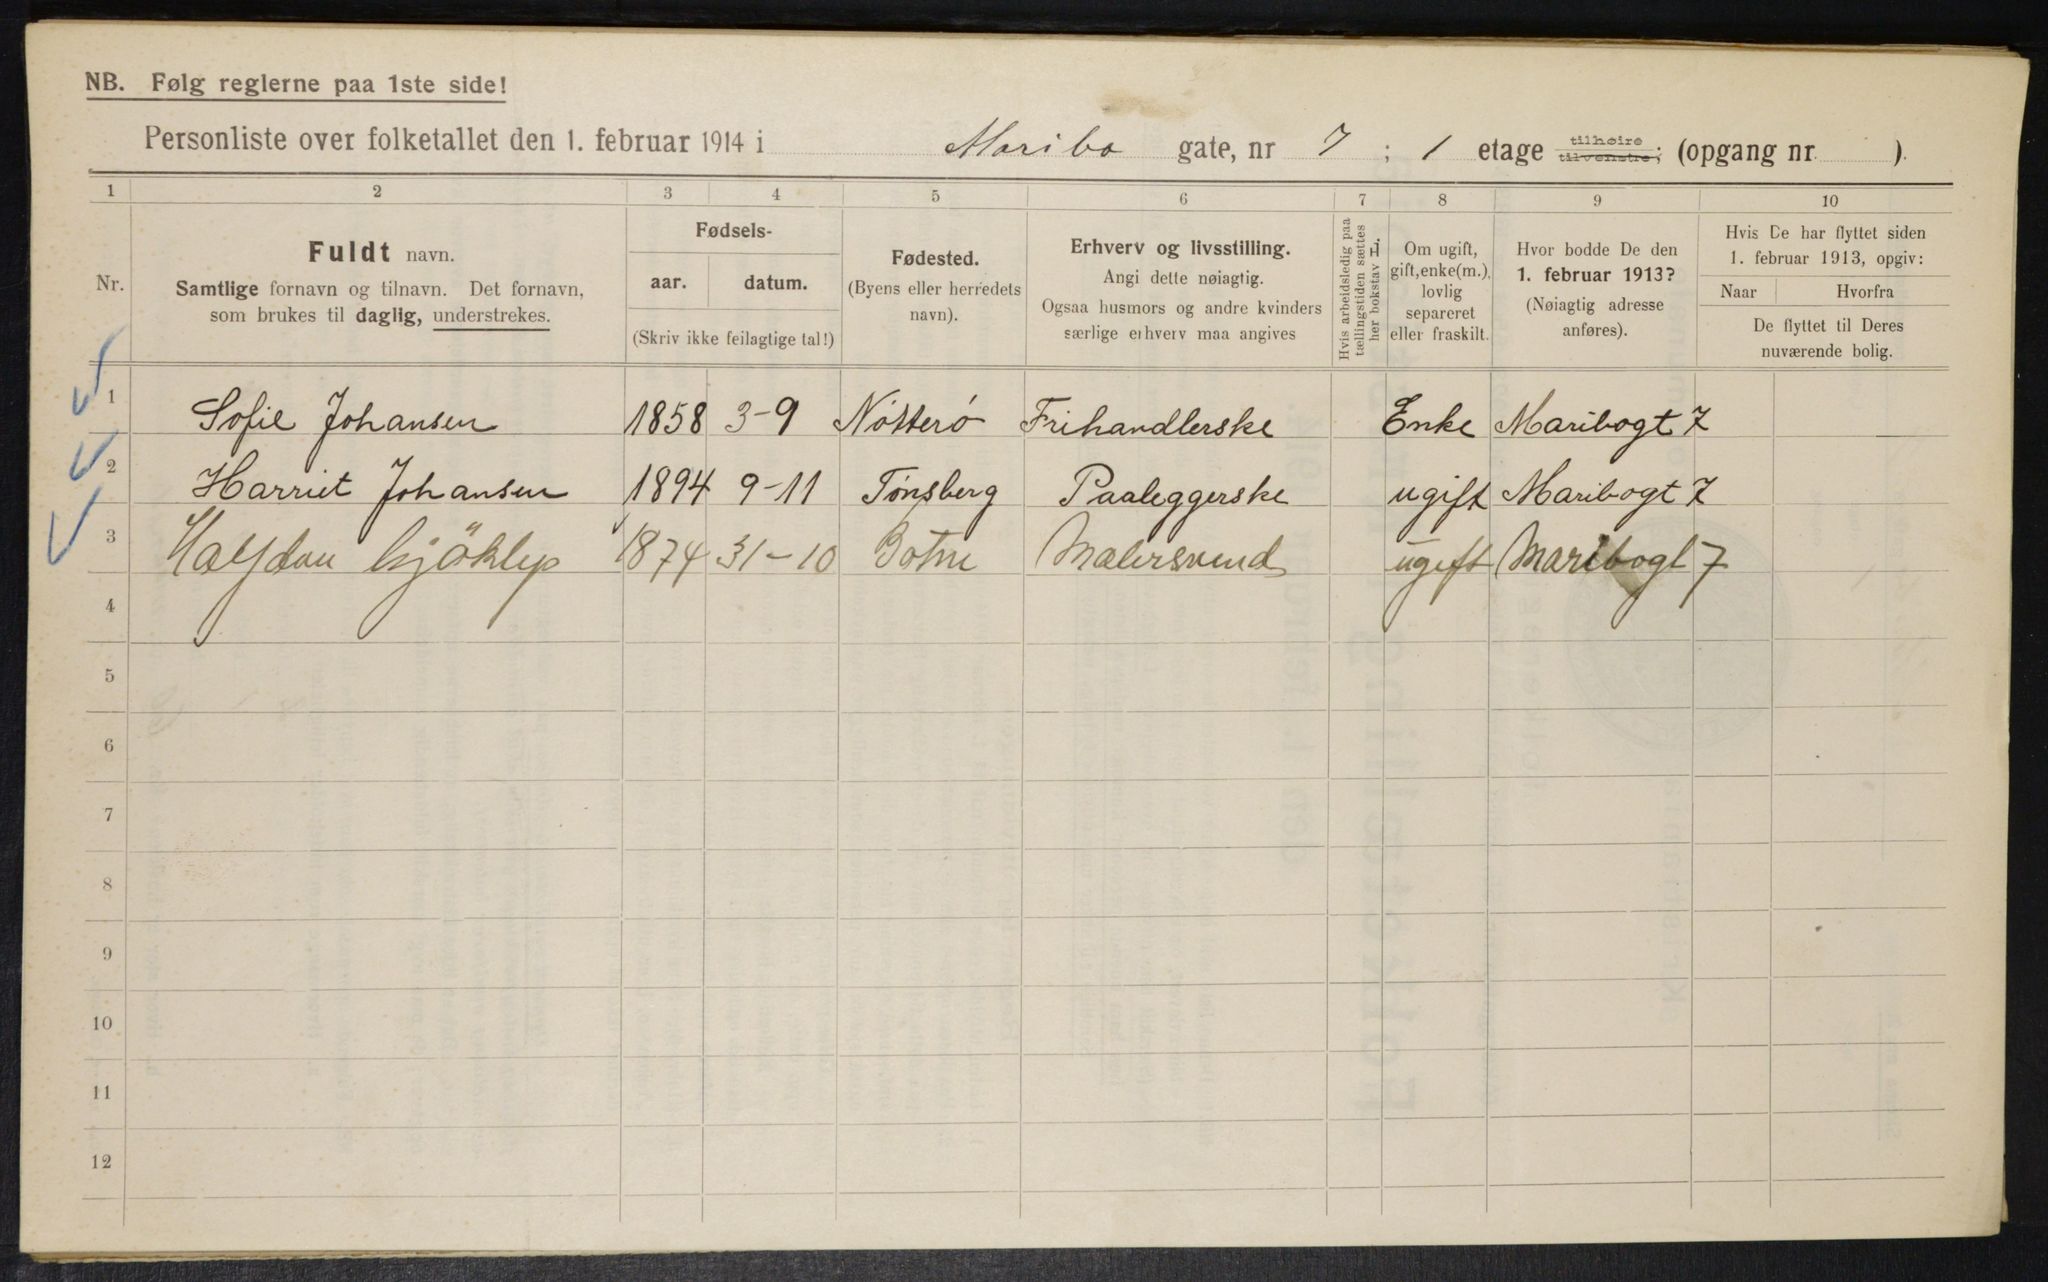 NB. Følg reglerne paa 1ste side!
Personliste over folketallet den 1. februar 1914 i Maribo gate, nr 7 ; 1 etage tilhøire tilvenstre; (opgang nr )
1 2 3 4 5 6 7 8 9 10
Nr.
Fuldt navn.
Samtlige fornavn og tilnavn. Det fornavn,
som brukes til daglig, understrekes.
Fødsels-
aar. datum.
(Skriv ikke feilagtige tal!)
Fødested.
(Byens eller herredets
navn).
Erhverv og livsstilling.
Angi dette nøiagtig.
Ogsaa husmors og andre kvinders
særlige erhverv maa angives
Hvis arbeidsledig paa
tællingstiden sættes
her bokstav L.
Om ugift,
gift, enke(m.),
lovlig
separeret
eller fraskilt.
Hvor bodde De den
1. februar 1913?
(Nøiagtig adresse
anføres).
Hvis De har flyttet siden
1. februar 1913, opgiv:
Naar Hvorfra
De flyttet til Deres
nuværende bolig.
1 Sofie Johansen 1858 3-9 Nötterö Frihandlerske Enke Maribogt 7
2 Harriet Johansen 1894 9-11 Tønsberg Paaleggerske ugift Maribogt 7
3 Halfdan 1874 31-10 Botne Malersvend ugift Maribogt 7
4
5
6
7
8
9
10
11
12